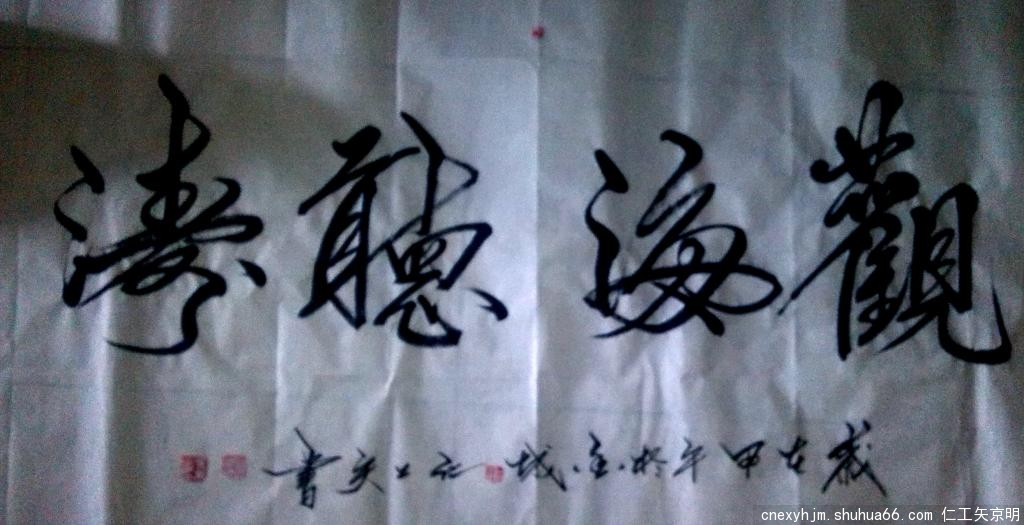 觀海聽濤
歲在甲午於金城仁工矢書
cnexyhjm.shuhua66.com 仁工矢京明